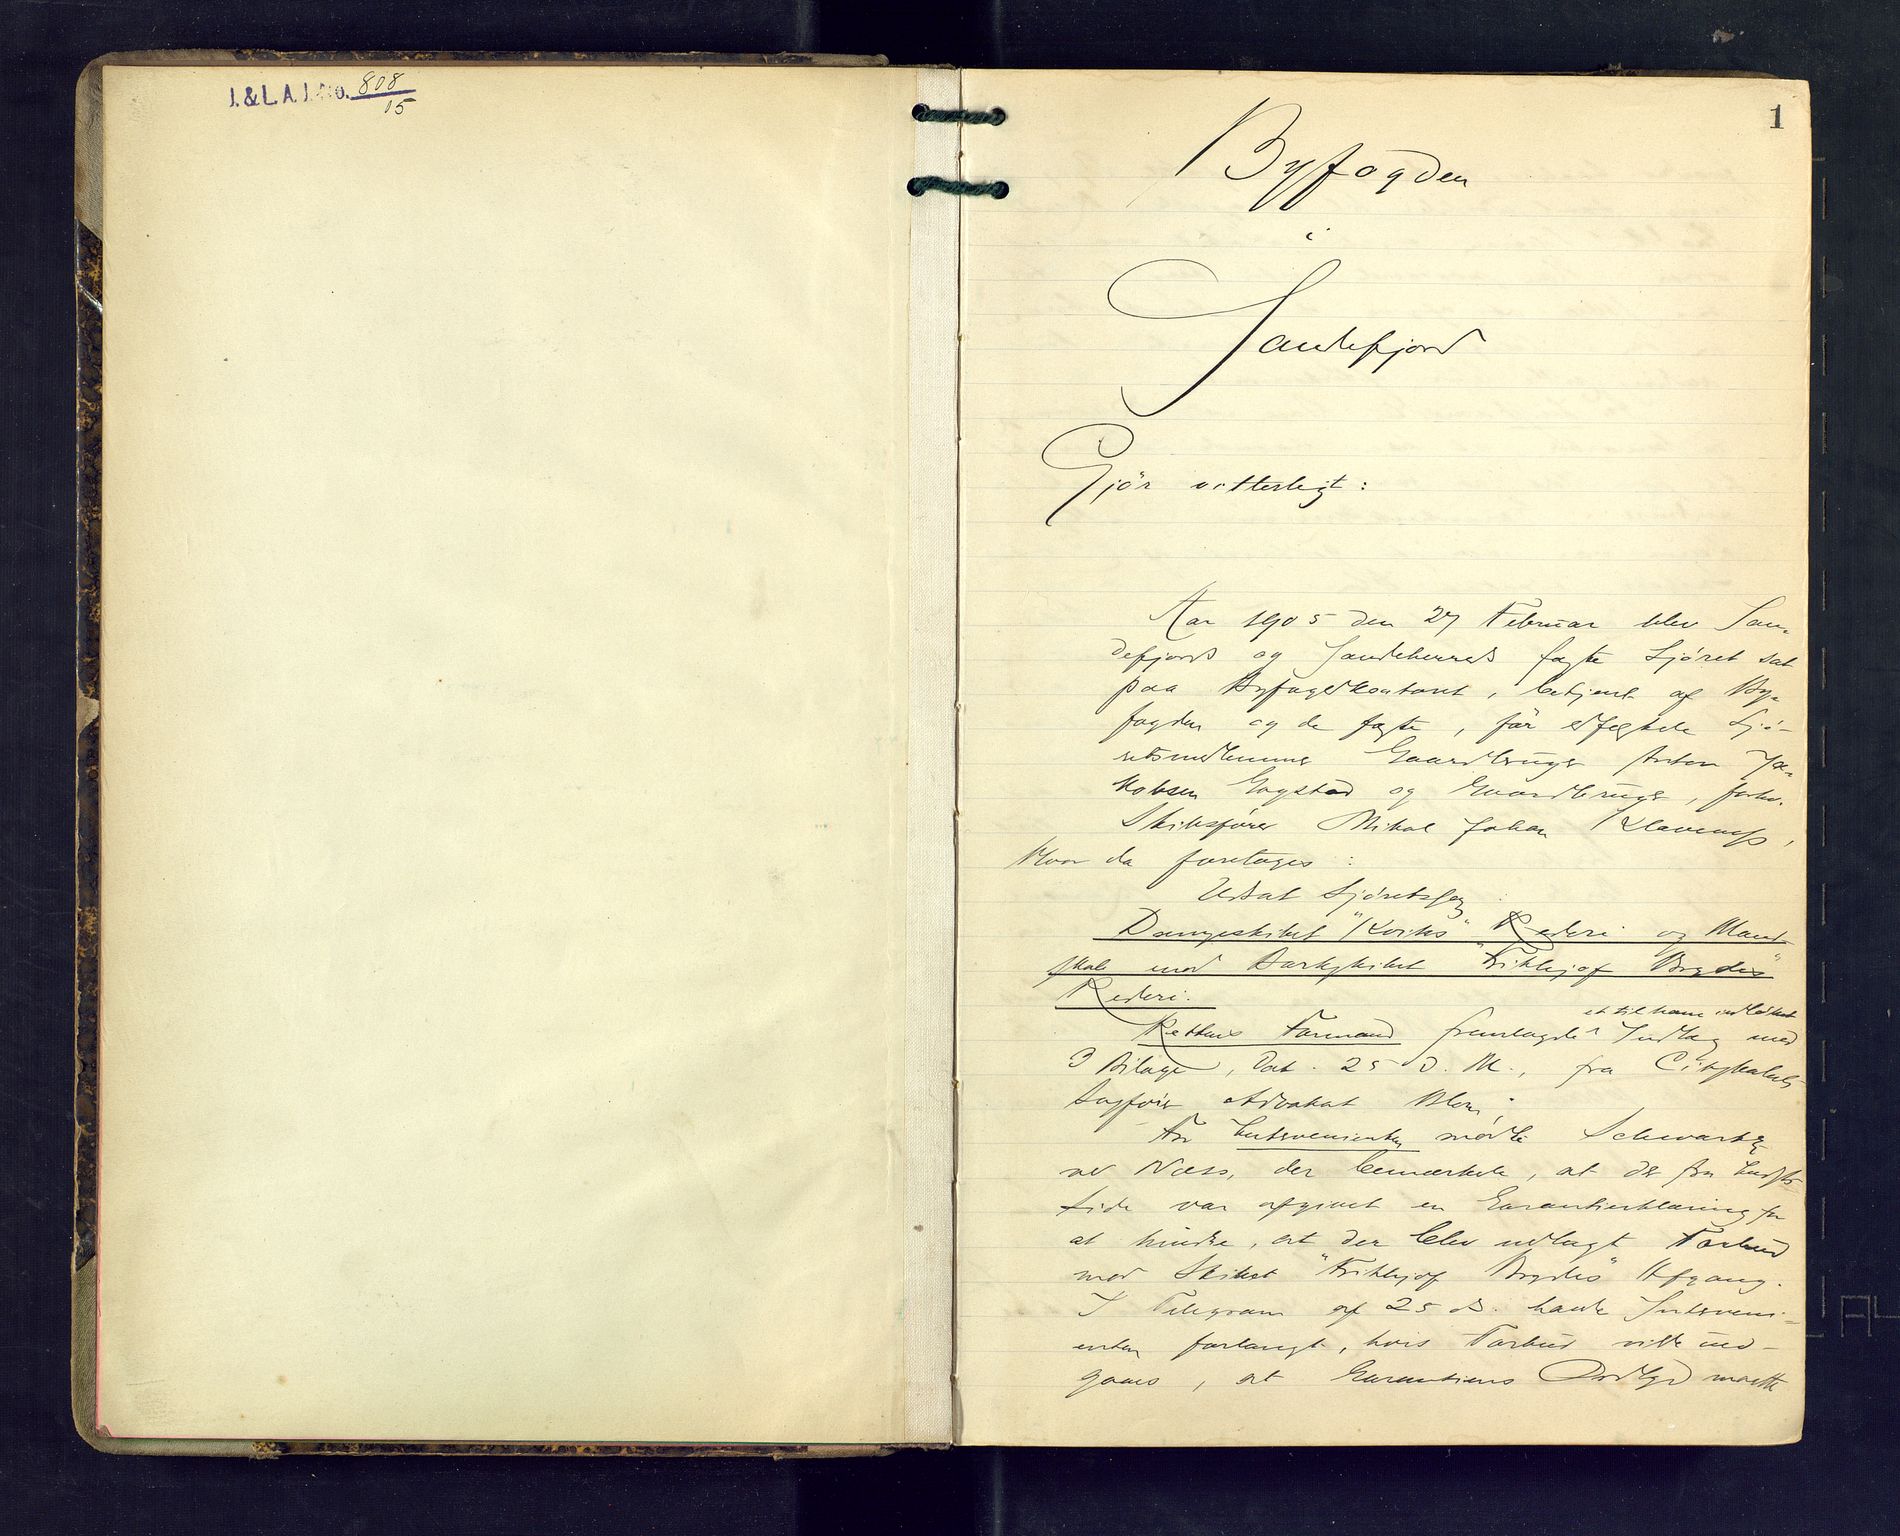 J. & L. A. J. No. 808/15
1
Byfogden
i
Sandefjord
Gjör vitterligt:
Aar 1905 den 27 Februar blev San-
defjords og Sandeherreds fagte Sjøret sat
paa Byfogedkontoret, betjent af By-
fogden og de fagte, før edfæstede Sjö-
retsmedlemmer Gaardbruger Anton Ja-
kobsen Gogstad og Gaardbruger, forhv.
Skibsfører Mikal Johan Klaveness,
Hvor da foretoges:
Udsat Sjöretssag:
Dampskibet "Kviks" Rederi og Mand-
skab mod Barkskibet "Frithjof Brydes"
Rederi.
Rettens Formand fremlagde et til ham indløbet Indlæg med
3 Bilage, dat. 25 d. M., fra
Sagförer Advokat Blom;
For Intervenienten mødte Schwartz
ved Næss, der bemærkede, at der fra hans
Side var afgivet en Garantierklæring for
at hindre, at der blev nedlagt Forbud
mod Skibet "Frithjof Brydes" Afgang.
I Telegram af 25 ds. havde Interveni-
enten forlangt, hvis Forbud vilde und-
gaaes, at Garantiens Ordlyd maatte